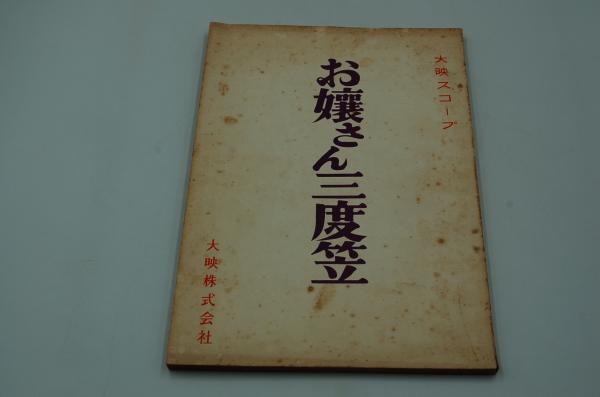 大映スコープ
お嬢さん三度笠
大映株式会社